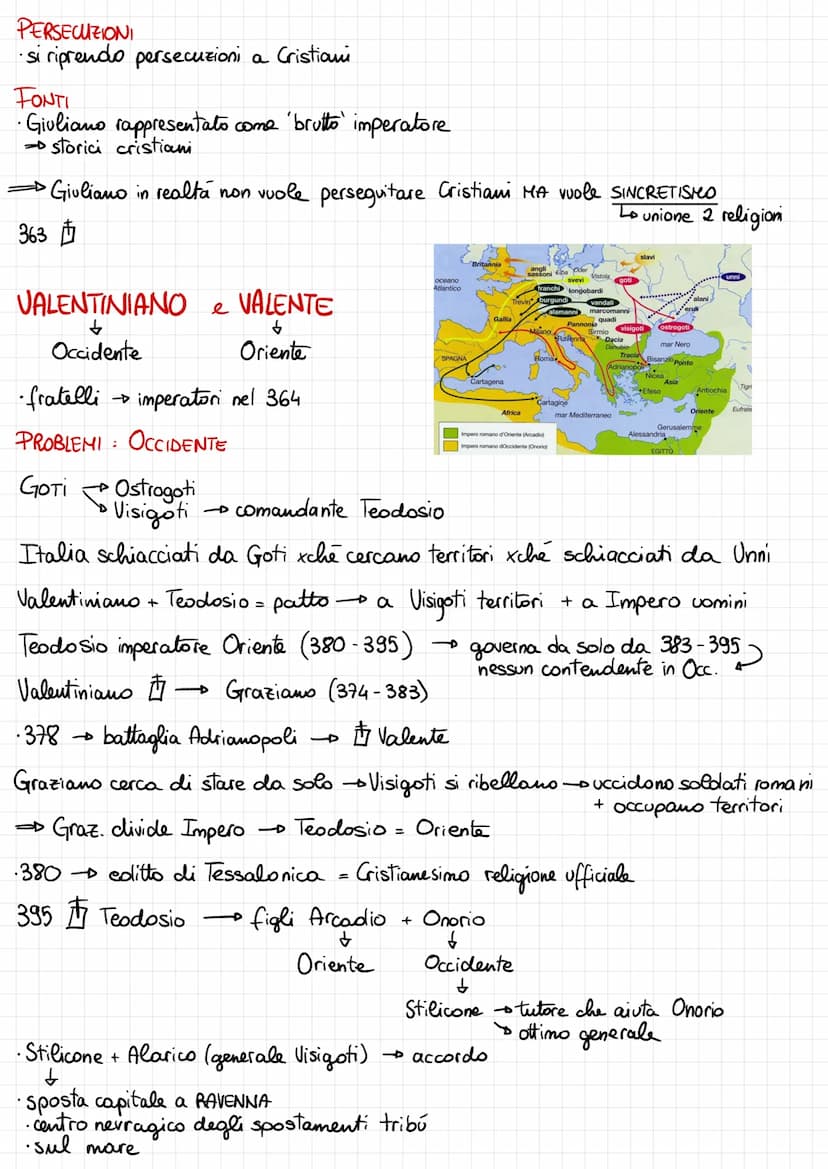 PERSECUZIONI
· si riprendo persecuzioni a Cristiani
FONTI
· Giuliano rappresentato come 'brutto' imperatore
⇒ storici cristiani
⇒ Giuliano in realtá non vuole perseguitare Cristiani MA vuole SINCRETISMO
↳ unione 2 religioni
363 ✝
VALENTINIANO e VALENTE
↓ ↓
Occidente Oriente
· fratelli → imperatori nel 364
PROBLEMI : OCCIDENTE
GOTI → Ostrogoti
→ Visigoti → comandante Teodosio
Italia schiacciati da Goti xché cercano territori xché schiacciati da Unni
Valentiniano + Teodosio = patto → a Visigoti territori + a Impero uomini
Teodosio imperatore Oriente (380 - 395) → governa da solo da 383 - 395
nessun contendente in Occ.
Valentiniano ✝ → Graziano (374 - 383)
· 378 → battaglia Adrianopoli → ✝ Valente
Graziano cerca di stare da solo → Visigoti si ribellano → uccidono soldati romani
+ occupano territori
⇒ Graz. divide Impero → Teodosio = Oriente
· 380 → editto di Tessalonica = Cristianesimo religione ufficiale
395 ✝ Teodosio → figli Arcadio + Onorio
↓ ↓
Oriente Occidente
↓
Stilicone → tutore che aiuta Onorio
→ ottimo generale
· Stilicone + Alarico (generale Visigoti) → accordo
↓
· sposta capitale a RAVENNA
· centro nevragico degli spostamenti tribú
· sul mare
Britannia
angli
sassoni
Elba
Oder
Vistola
slavi
oceano
Atlantico
svevi
goti
unni
franchi
longobardi
Treviri
burgundi
vandali
alani
alamanni
marcomanni
eruli
Gallia
quadi
Pannonia
visigoti
ostrogoti
Milano
Sirmio
Ravenna
Dacia
Danubio
mar Nero
SPAGNA
Roma
Tracia
Bisanzio
Ponto
Adrianopoli
Nicea
Asia
Cartagena
Efeso
Antiochia
Tigri
Cartagine
Africa
mar Mediterraneo
Oriente
Eufrate
Gerusalemme
Alessandria
EGITTO
Impero romano d'Oriente (Arcadio)
Impero romano d'Occidente (Onorio)